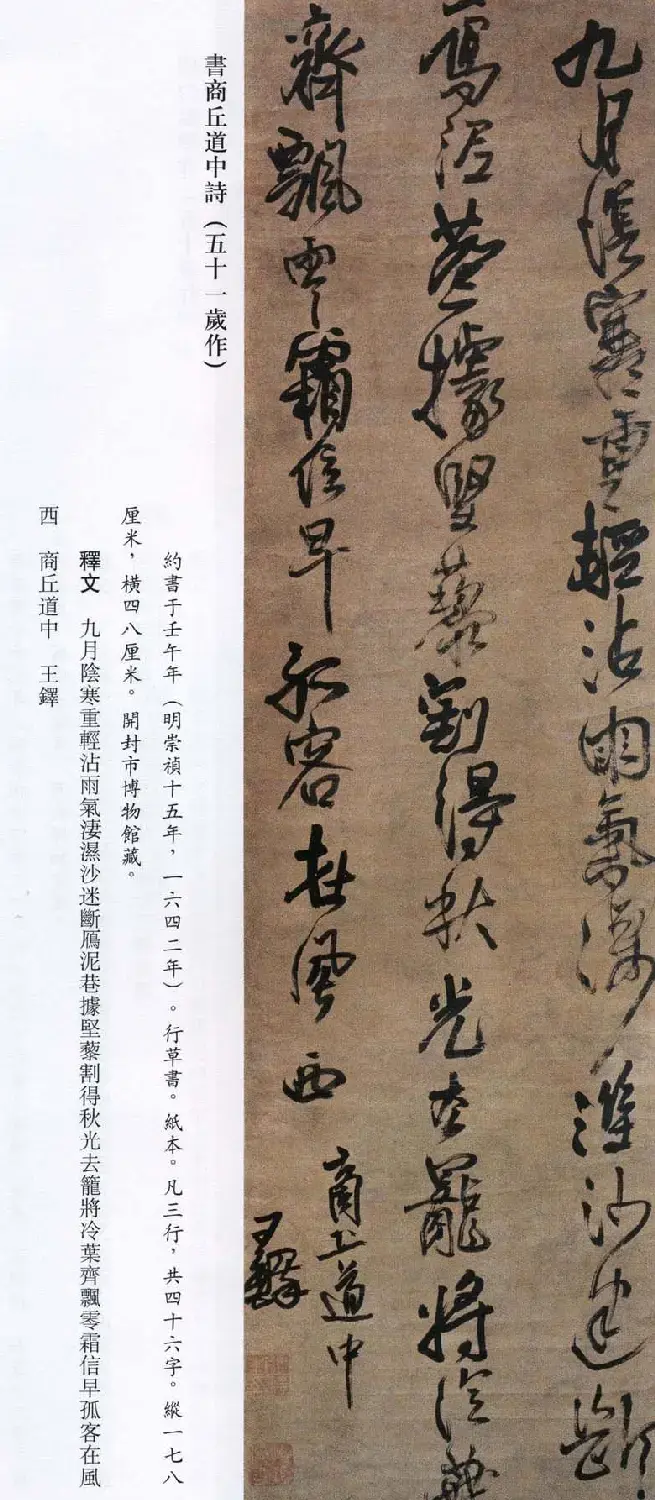 九月陰寒重輕沾雨氣淒濕沙迷斷
鴈泥巷據堅藜割得秋光去籠將冷葉
齊飄零霜信早孤客在風西
商丘道中
王鐸
書商丘道中詩（五十一歲作）
約書于壬午年（明崇禎十五年，一六四二年）。行草書。紙本。凡三行，共四十六字。縱一七八
厘米，橫四八厘米。開封市博物館藏。
釋文 九月陰寒重輕沾雨氣淒濕沙迷斷鴈泥巷據堅藜割得秋光去籠將冷葉齊飄零霜信早孤客在風
西 商丘道中 王鐸